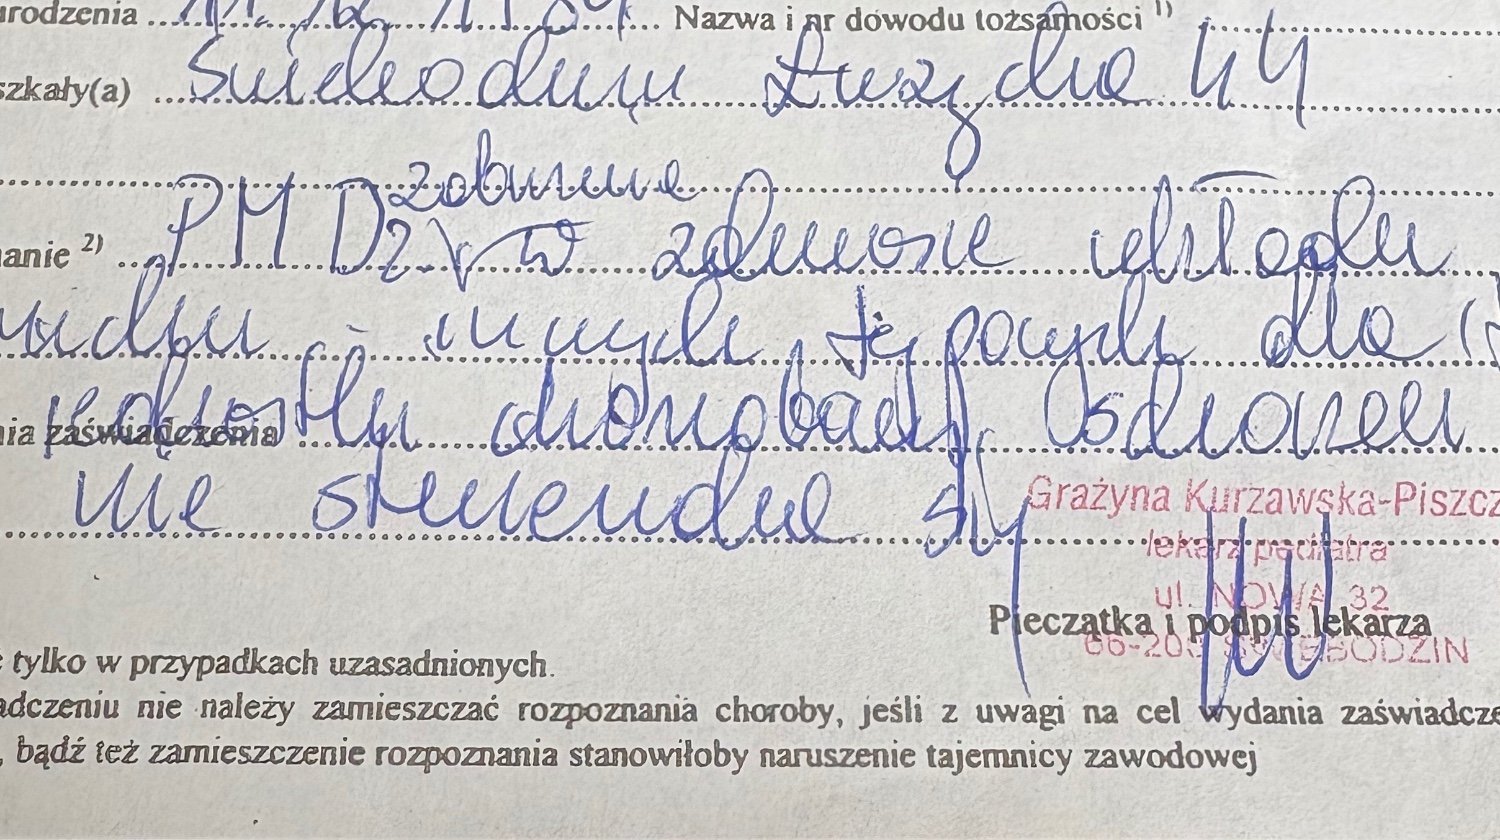 urodzenia Nazwa i nr dowodu tożsamości 1)
szkały(a) Świebodzin Łużycka 44
zaburzenia
anie 2) PMDz w zakresie układu
ruchu i innych typowych dla
nia zaświadczenia jednostki chorobowej
nie stwierdza się
Grażyna Kurzawska-Piszcz
lekarz pediatra
ul. NOWA 32
Pieczątka i podpis lekarza
66-200 ŚWIEBODZIN
tylko w przypadkach uzasadnionych.
adczeniu nie należy zamieszczać rozpoznania choroby, jeśli z uwagi na cel wydania zaświadcze
, bądź też zamieszczenie rozpoznania stanowiłoby naruszenie tajemnicy zawodowej